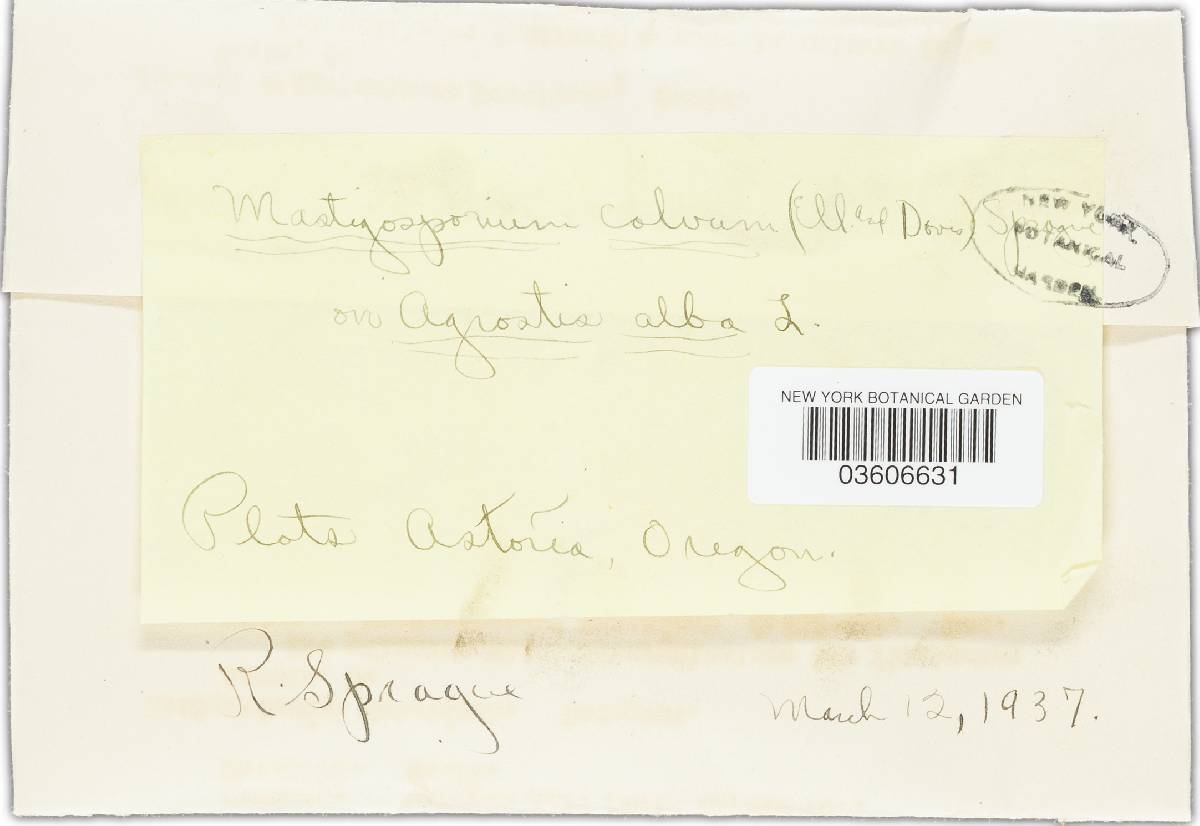 Mastigosporium calvum (Ell. and Davis) Sprague
NEW YORK
BOTANICAL
GARDEN
on Agrostis alba L.
NEW YORK BOTANICAL GARDEN
03606631
Plots Astoria, Oregon.
R. Sprague
March 12, 1937.